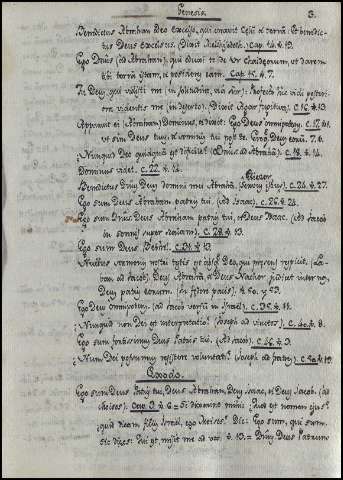 Genesis. 3.
Benedictus Abraham Deo excelso, qui creavit Cęlū et terrā: Et benedic-
tus Deus excelsus. (Dixit Melchisedech). Cap. 14. ℣. 19.
Ego Dnūs (ad Abraham), qui eduxi te de Ur Chaldęorum, ut darem
tibi terrā istam, et possideres eam. Cap. 15. ℣. 7.
Tu Deus, qui vidisti me (in solitudine, via Sur): Profecto hic vidi posteri-
ora videntis me (in deserto). Dixit Agar fugitiva. c. 16. ℣. 13
Apparuit ei (Abraham) Dominus, et dixit: Ego Deus omnipotens. c. 17. ℣. 1.
et sim Deus tuus, et seminis tui post te. Eroq. Deus eorū. 7. 8.
Nunquid Deo quidquā est difficile? (Dnūs ad Abrahā). c. 18. ℣. 14.
Dominus videt. c. 22. ℣. 14.
Eliezer
Benedictus Dnus Deus domini mei Abrahā. (servus ejus). c. 24. ℣. 27.
Ego sum Deus Abraham patris tui, (ad Isaac). c. 26. ℣. 24.
Ego sum Dnūs Deus Abraham patris tui, et Deus Isaac. (ad Iacob
in somnis super scalam). c. 28. ℣. 13.
Ego sum Deus (Bethel). c. 31. ℣. 13
Nullus sermonis nostri testis est absq. Deo, qui pręsens respicit, (La-
ban ad Iacob). Deus Abrahā, et Deus Nachor judicet inter nos,
Deus patris eorum. ℣. 50. y 53.
Ego Deus omnipotens. (ad Iacob in Israel). c. 35. ℣. 11.
Nunquid non Dei est interpretatio? (Ioseph ad vinctos). c. 40. ℣. 8.
Ego sum fortissimus Deus Patris tui. (Ad Iacob). c. 46. ℣. 3.
Num Dei possumus resistere voluntati? (Ioseph ad fratres). ℣. 19
Exodo.
Ego sum Deus Patris tui, Deus Abraham, Deus Isaac, et Deus Iacob. (ad
Moises). Cap. 3. ℣ 6 = Si dixerint mihi: Quod est nomen ejus?
quid dicam filiis Israel, ego Moises? Dic: Ego sum, qui sum.
Sic dices: Qui est misit me ad vos. ℣. 13. = Dnus Deus Patrum